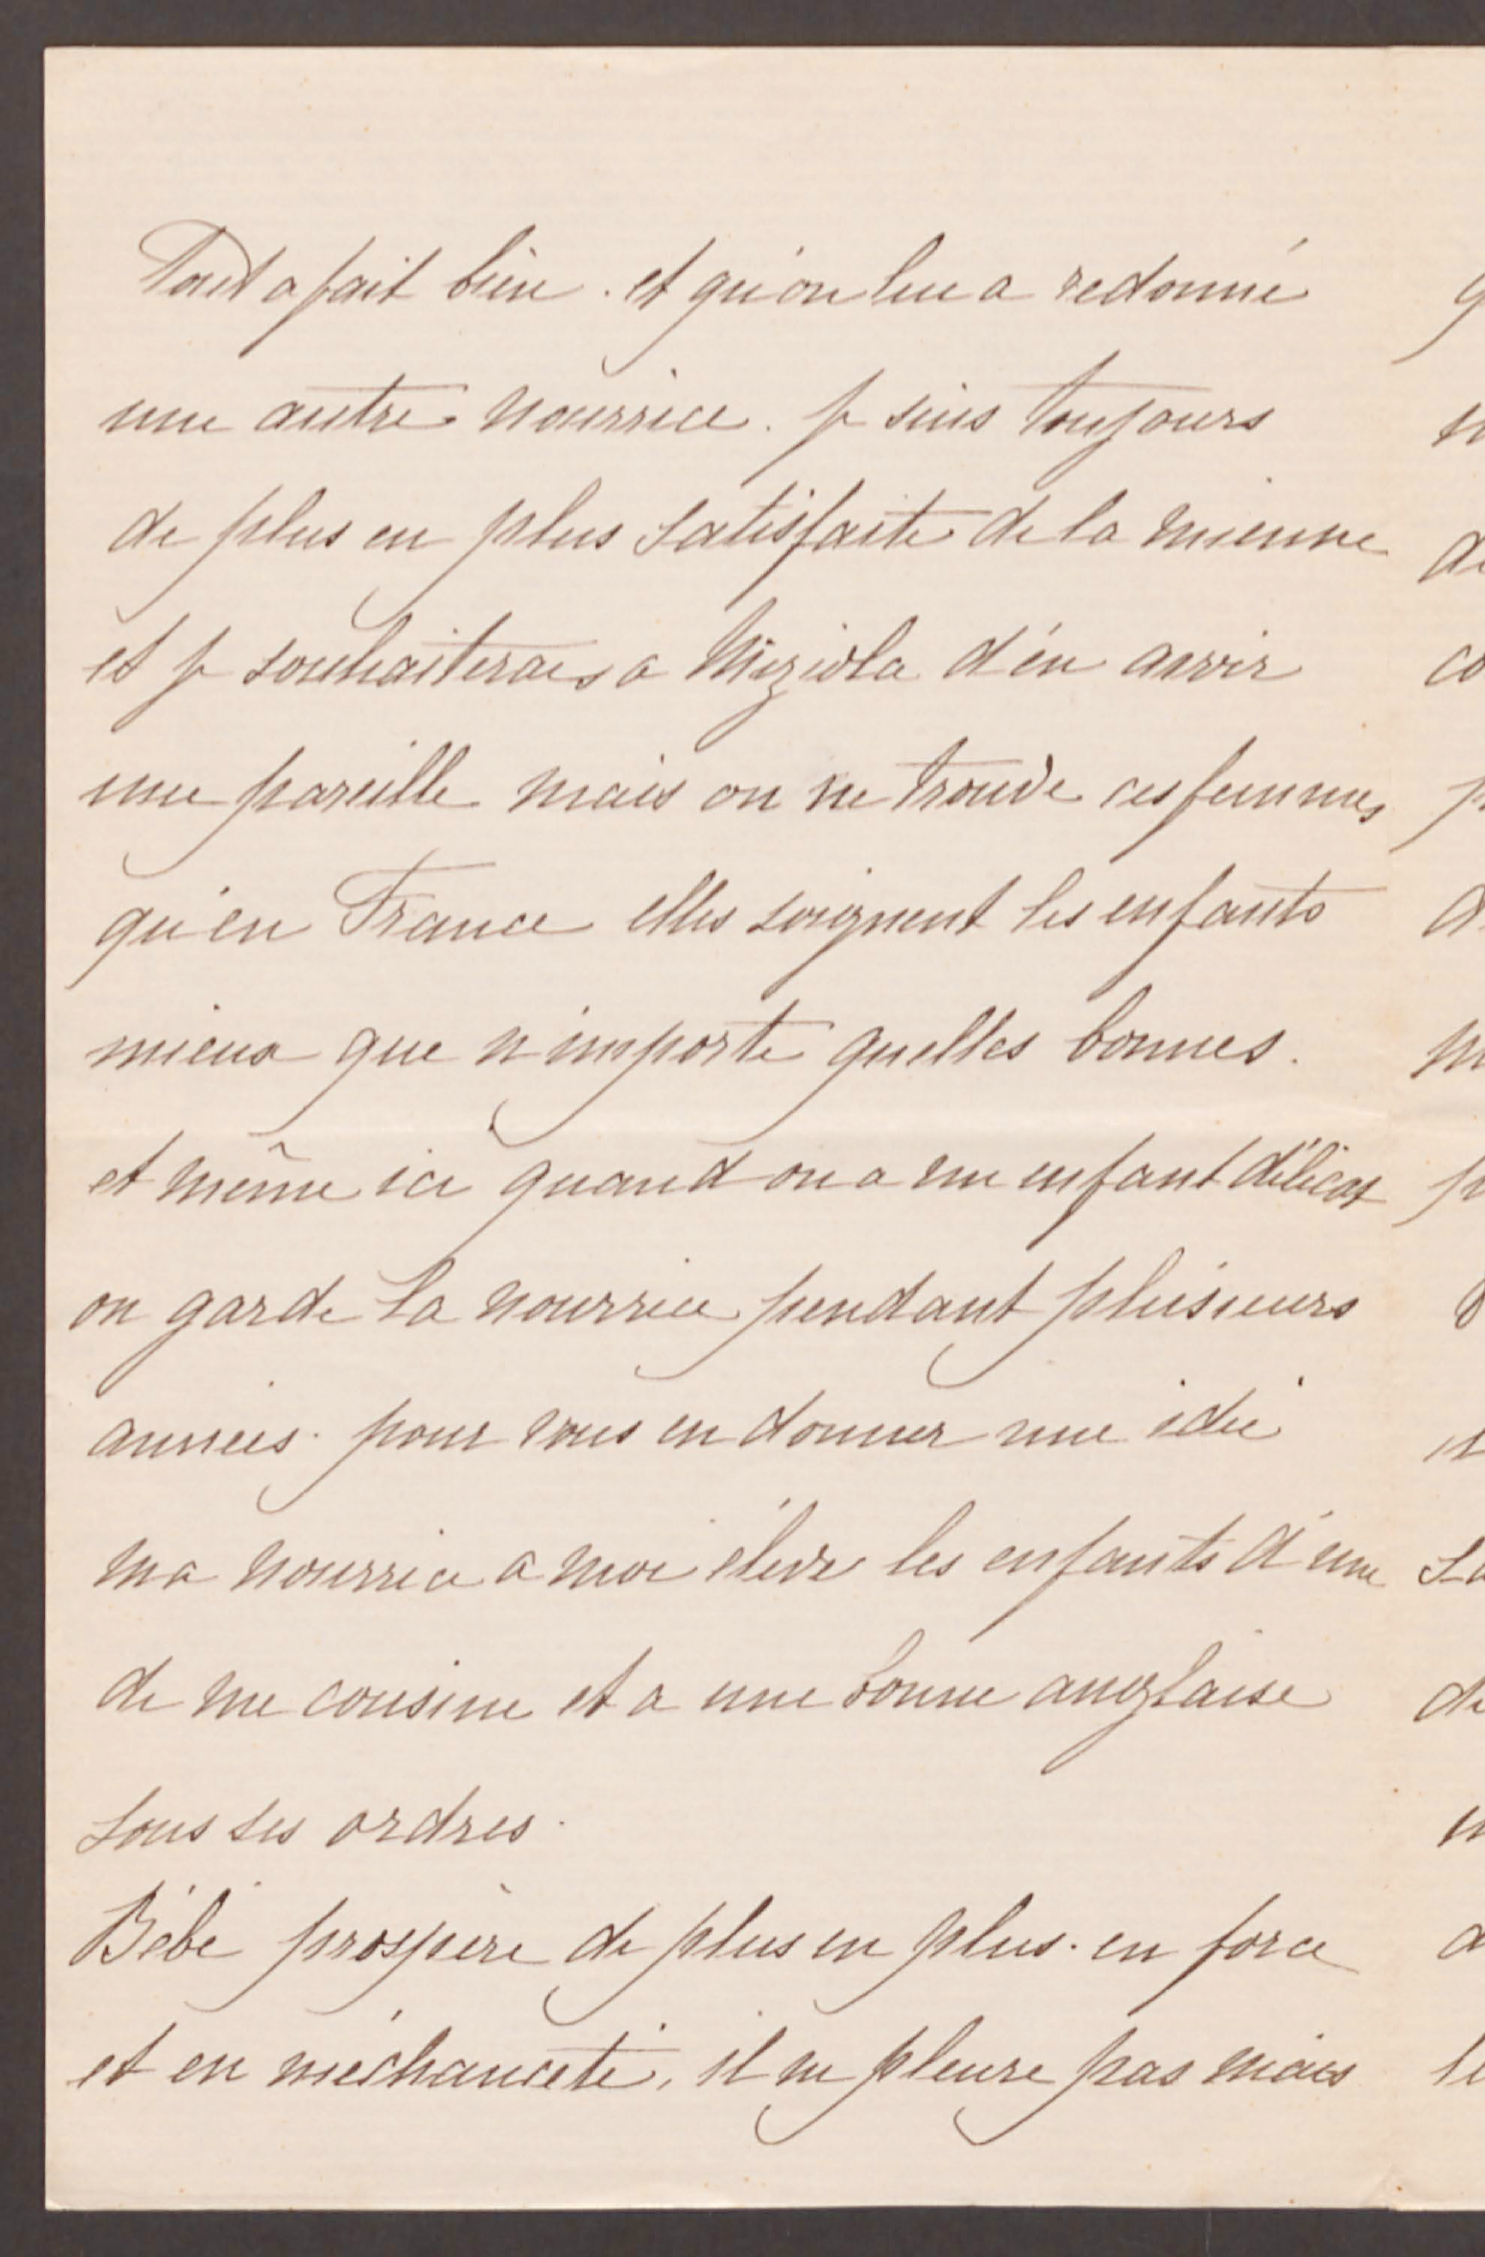 Tout a fait bien. et qu'on lui a redonné
une autre nourrice. je suis toujours
de plus en plus satisfaite de la mienne
et je souhaiterais a d'en avoir
une pareille mais on ne trouve ces femmes
qu'en France elles soignent les enfants
mieux que n'importe quelles bonnes.
et même ici quand on a un enfant délicat
on garde la nourrice pendant plusieurs
années. pour vous en donner une idée
ma nourrice a moi élève les enfants d'une
de me cousine et a une bonne anglaise
sous ses ordres.
Bébé prospère de plus en plus. en force
et en méchanceté, il ne pleure pas mais